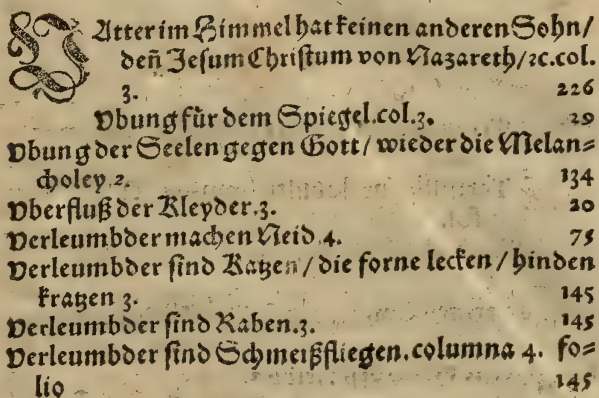 VAtter im Himmel hat keinen anderen Sohn/
deñ Jesum Christum von Nazareth/ ꝛc. col.
3. 226
Vbung für dem Spiegel. col. 3. 29
Vbung der Seelen gegen Gott/ wieder die Melan=
choley. 2. 134
Vberfluß der Kleyder. 3. 20
Verleumbder machen Neid. 4. 75
Verleumbder sind Katzen/ die forne lecken/ hinden
kratzen 3. 145
Verleumbder sind Raben. 3. 145
Verleumbder sind Schmeißfliegen. columna 4. fo=
lio 145